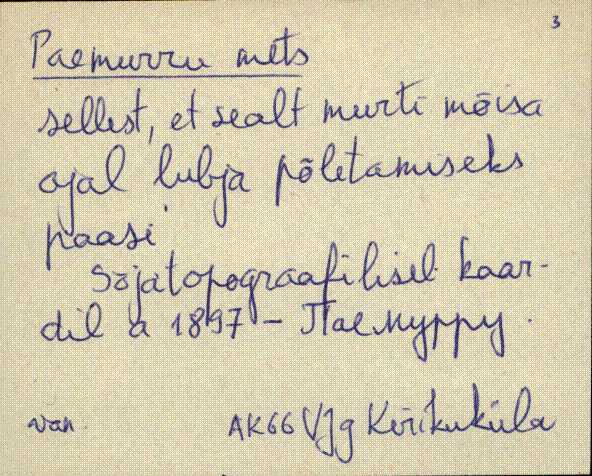 3
Paemurru mets
sellest, et sealt murti mõisa
ajal lubja põletamiseks
paasi
Sõjatopograafilisel kaar-
dil a 1897 - Паемурру.
van. AK66 VJg Kirikuküla